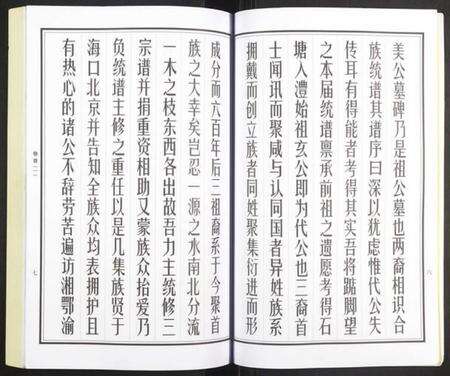 美公墓碑乃是祖公墓也两裔相识合
族统谱其谱序曰深以犹虑惟代公失
传耳有得能者考得其实吾将踮脚望
之本届统谱禀承前祖之遗愿考得石
塘入澧始祖玄公即为代公也三裔首
士闻讯而聚咸与认同国者异姓族系
拥戴而创立族者同姓聚集衍进而形
成分而六百年后三祖裔系于今聚首
族之大幸矣岂忍一源之水南北分流
一木之枝东西各出故吾力主统修三
宗谱并捐重资相助又蒙族众抬爱乃
负统谱主修之重任以是几集族贤于
海口北京并告知全族众均表拥护且
有热心的诸公不辞劳苦遍访湘鄂渝
六
七